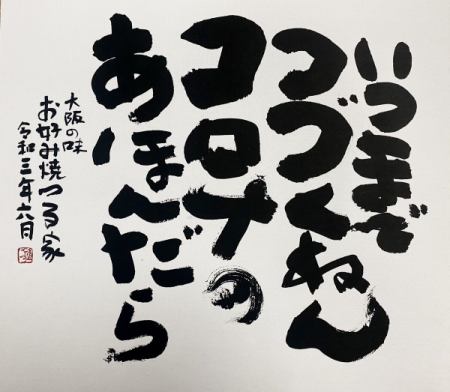 いつまで
つづくねん
コロナの
あほんだら
大阪の味
お好み焼つる家
令和三年六月